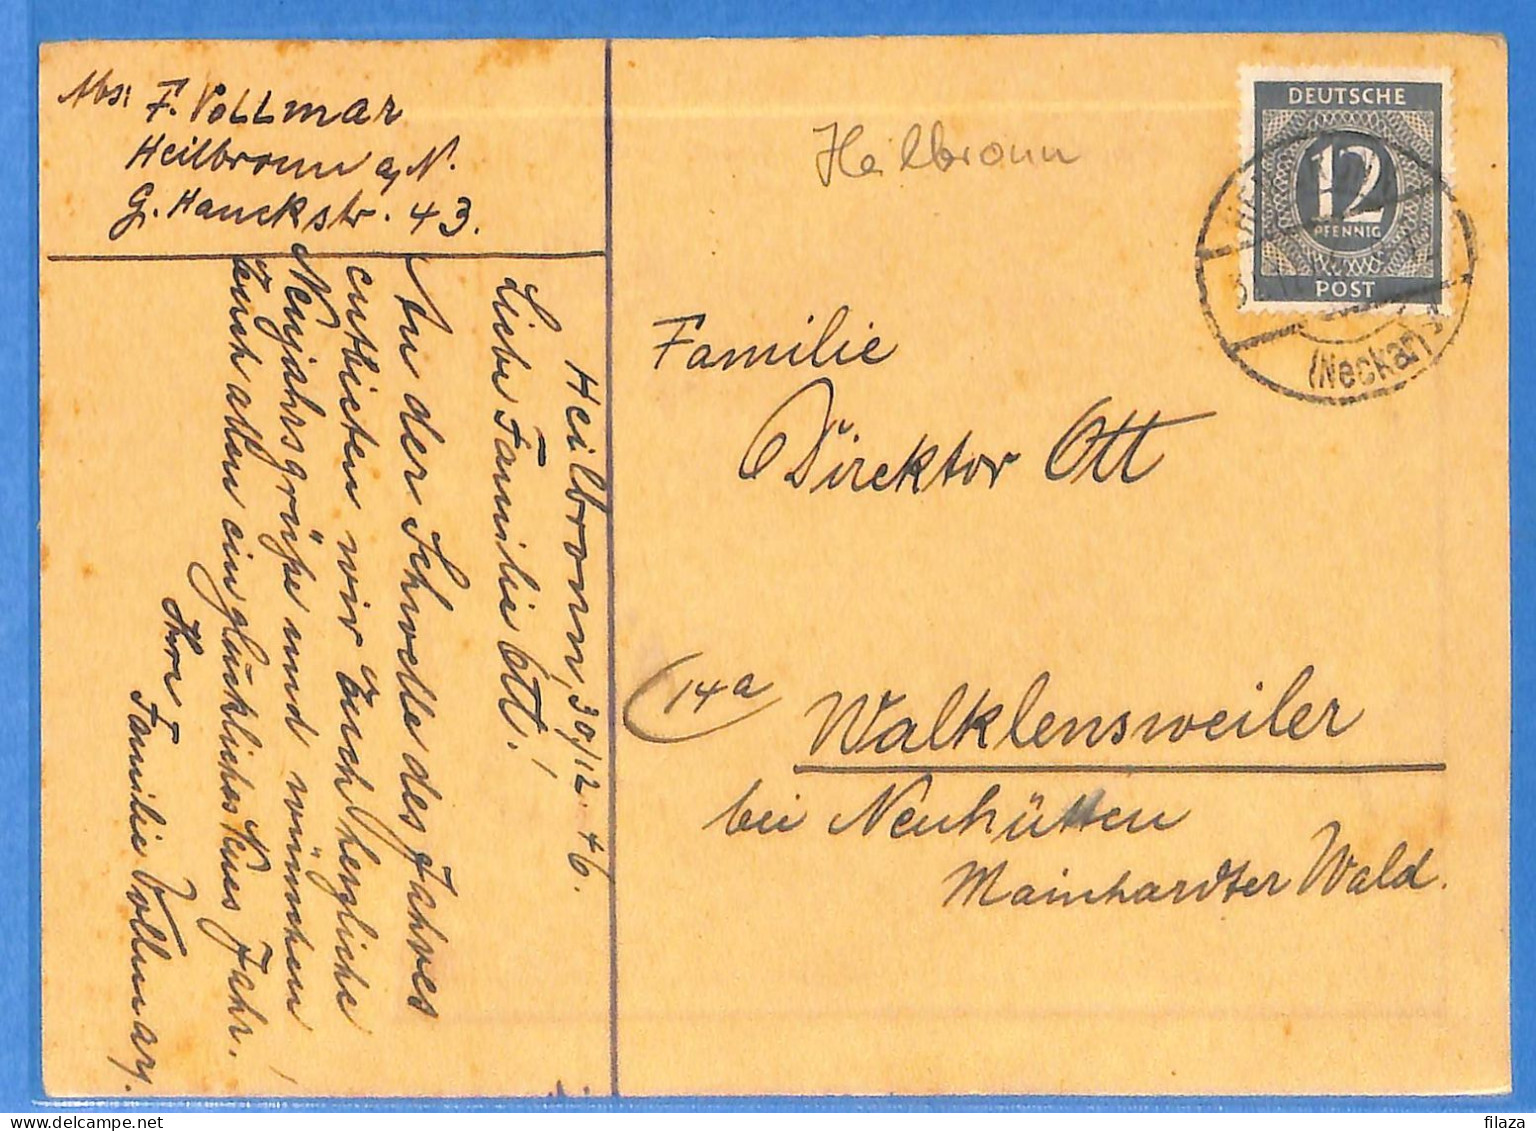 Abs: F. Vollmar
Heilbronn a/N.
G. Hauckstr. 43.
Heilbronn, 30/12. 46.
Liebe Familie Ott!
An der Schwelle des Jahres
entbieten wir Euch herzliche
Neujahrsgrüße und wünschen
Euch allen ein glückliches Neues Jahr.
Ihre
Familie Vollmar.
Heilbronn
DEUTSCHE
12
PFENNIG
POST
(Neckar)
Familie
Direktor Ott
14a
Walklensweiler
bei Neuhütten
Mainhardter Wald.
filaza